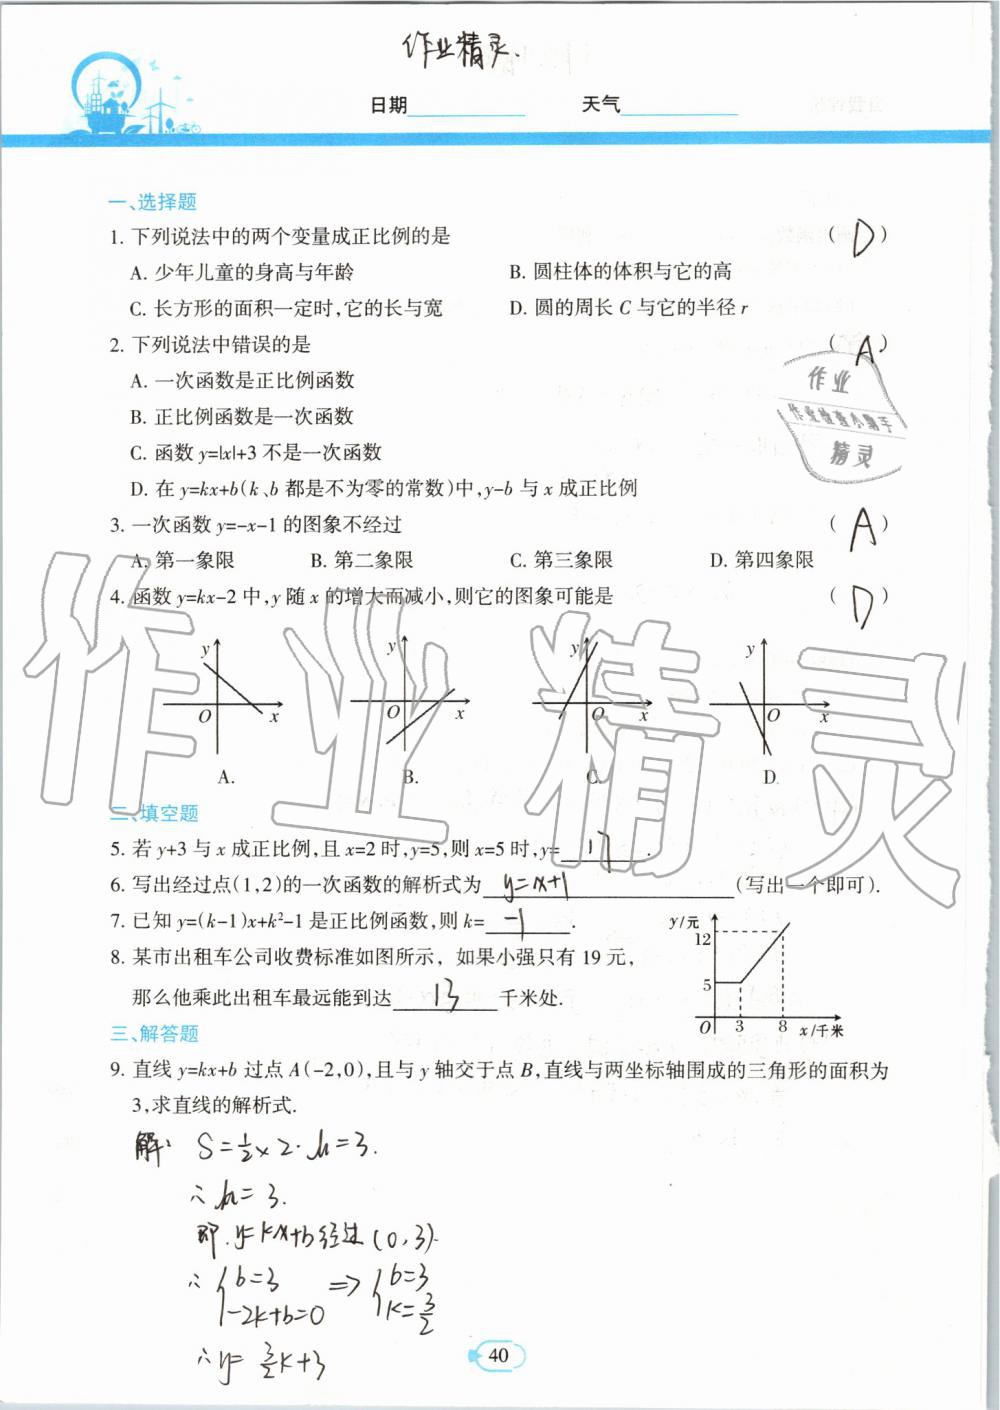 作业精灵.
日期 天气
一、选择题
1. 下列说法中的两个变量成正比例的是 ( D )
A. 少年儿童的身高与年龄 B. 圆柱体的体积与它的高
C. 长方形的面积一定时,它的长与宽 D. 圆的周长 C 与它的半径 r
2. 下列说法中错误的是 ( A )
A. 一次函数是正比例函数
B. 正比例函数是一次函数
C. 函数 y=|x|+3 不是一次函数
D. 在 y=kx+b(k、b 都是不为零的常数)中,y-b 与 x 成正比例
作业
作业检查小帮手
精灵
3. 一次函数 y=-x-1 的图象不经过 ( A )
A. 第一象限 B. 第二象限 C. 第三象限 D. 第四象限
4. 函数 y=kx-2 中,y 随 x 的增大而减小,则它的图象可能是 ( D )
y y y y
O x O x O x O x
A. B. C. D.
作业精灵
二、填空题
5. 若 y+3 与 x 成正比例,且 x=2 时,y=5,则 x=5 时,y= 17 .
6. 写出经过点(1,2)的一次函数的解析式为 y=x+1 (写出一个即可).
7. 已知 y=(k-1)x+k²-1 是正比例函数,则 k= -1 .
8. 某市出租车公司收费标准如图所示，如果小强只有 19 元，
那么他乘此出租车最远能到达 13 千米处.
y/元
12
5
O 3 8 x/千米
三、解答题
9. 直线 y=kx+b 过点 A(-2,0),且与 y 轴交于点 B,直线与两坐标轴围成的三角形的面积为
3,求直线的解析式.
解: S=½×2·h=3.
∴h=3.
即.y=kx+b经过(0,3).
∴ {b=3 ⇒ {b=3
-2k+b=0 k=3/2
∴y=3/2k+3
40